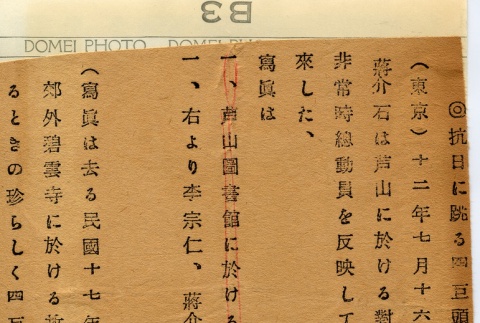 B3
DOMEI PHOTO DOMEI PH
◎抗日に跳る四巨頭
(東京)十二年七月十六
蔣介石は芦山に於ける對
非常時總動員を反映して
來した、
寫眞は
一、芦山圖書館に於ける
一、右より李宗仁、蔣介
(寫眞は去る民國十七年
郊外碧雲寺に於ける
るときの珍らしく四